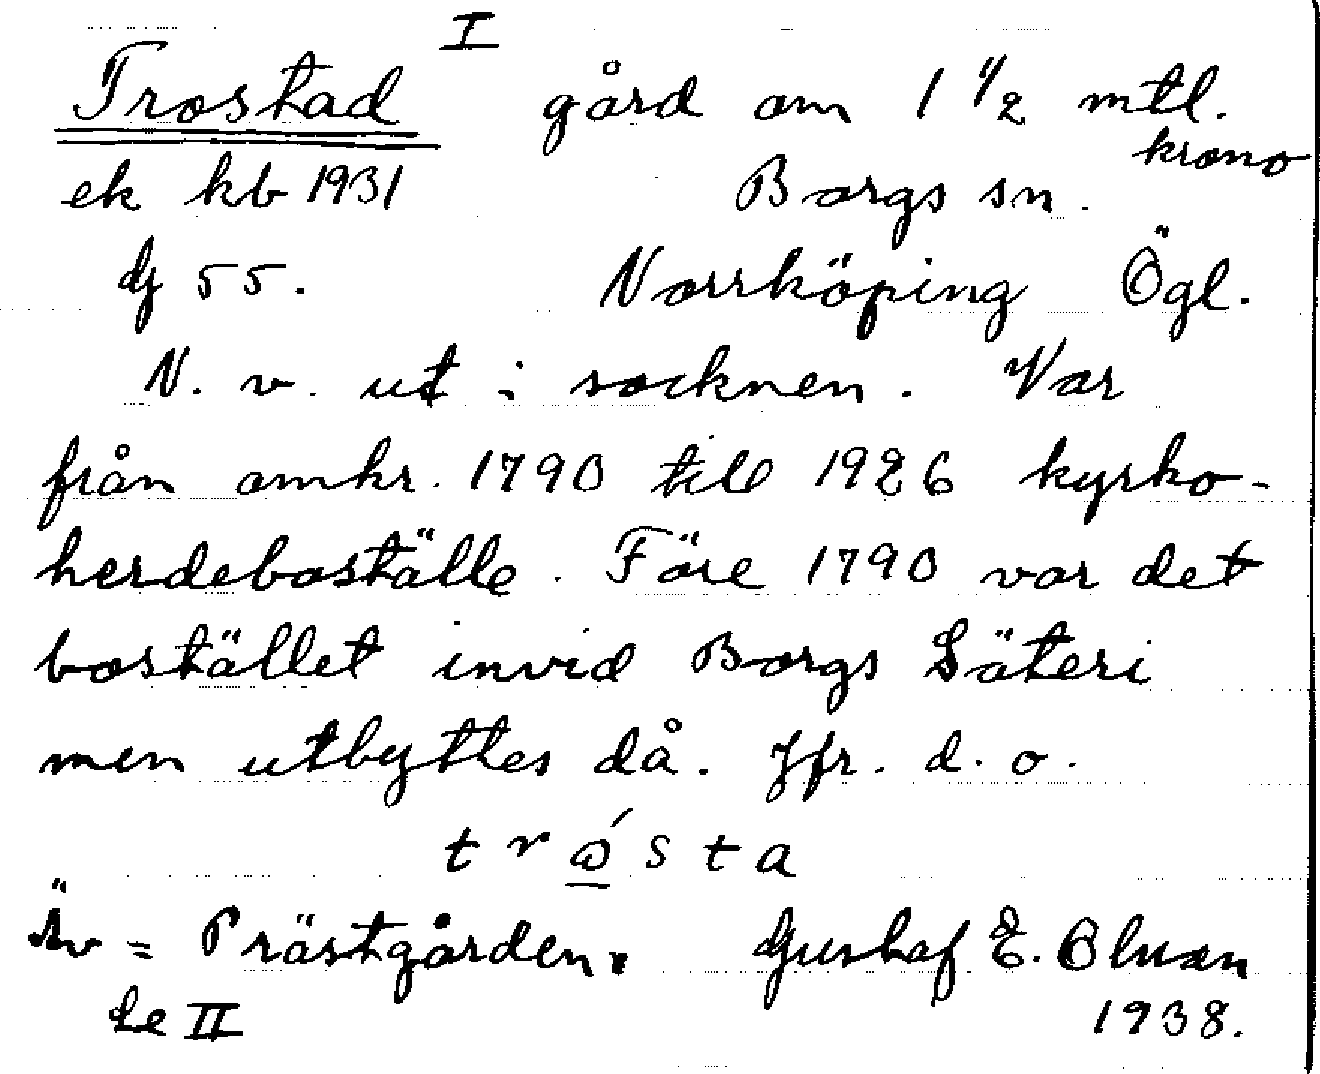 I
Trostad gård om 1 1/2 mtl.
krono
ek kb 1931 Borgs sn.
dj 55. Norrköping Ögl.
N. v. ut i socknen. Var
från omkr. 1790 till 1926 kyrko-
herdeboställe. Före 1790 var det
bostället invid Borgs Säteri
men utbyttes då. Jfr. d. o.
trósta
Äv = Prästgården. Gustaf E.
Se II 1938.